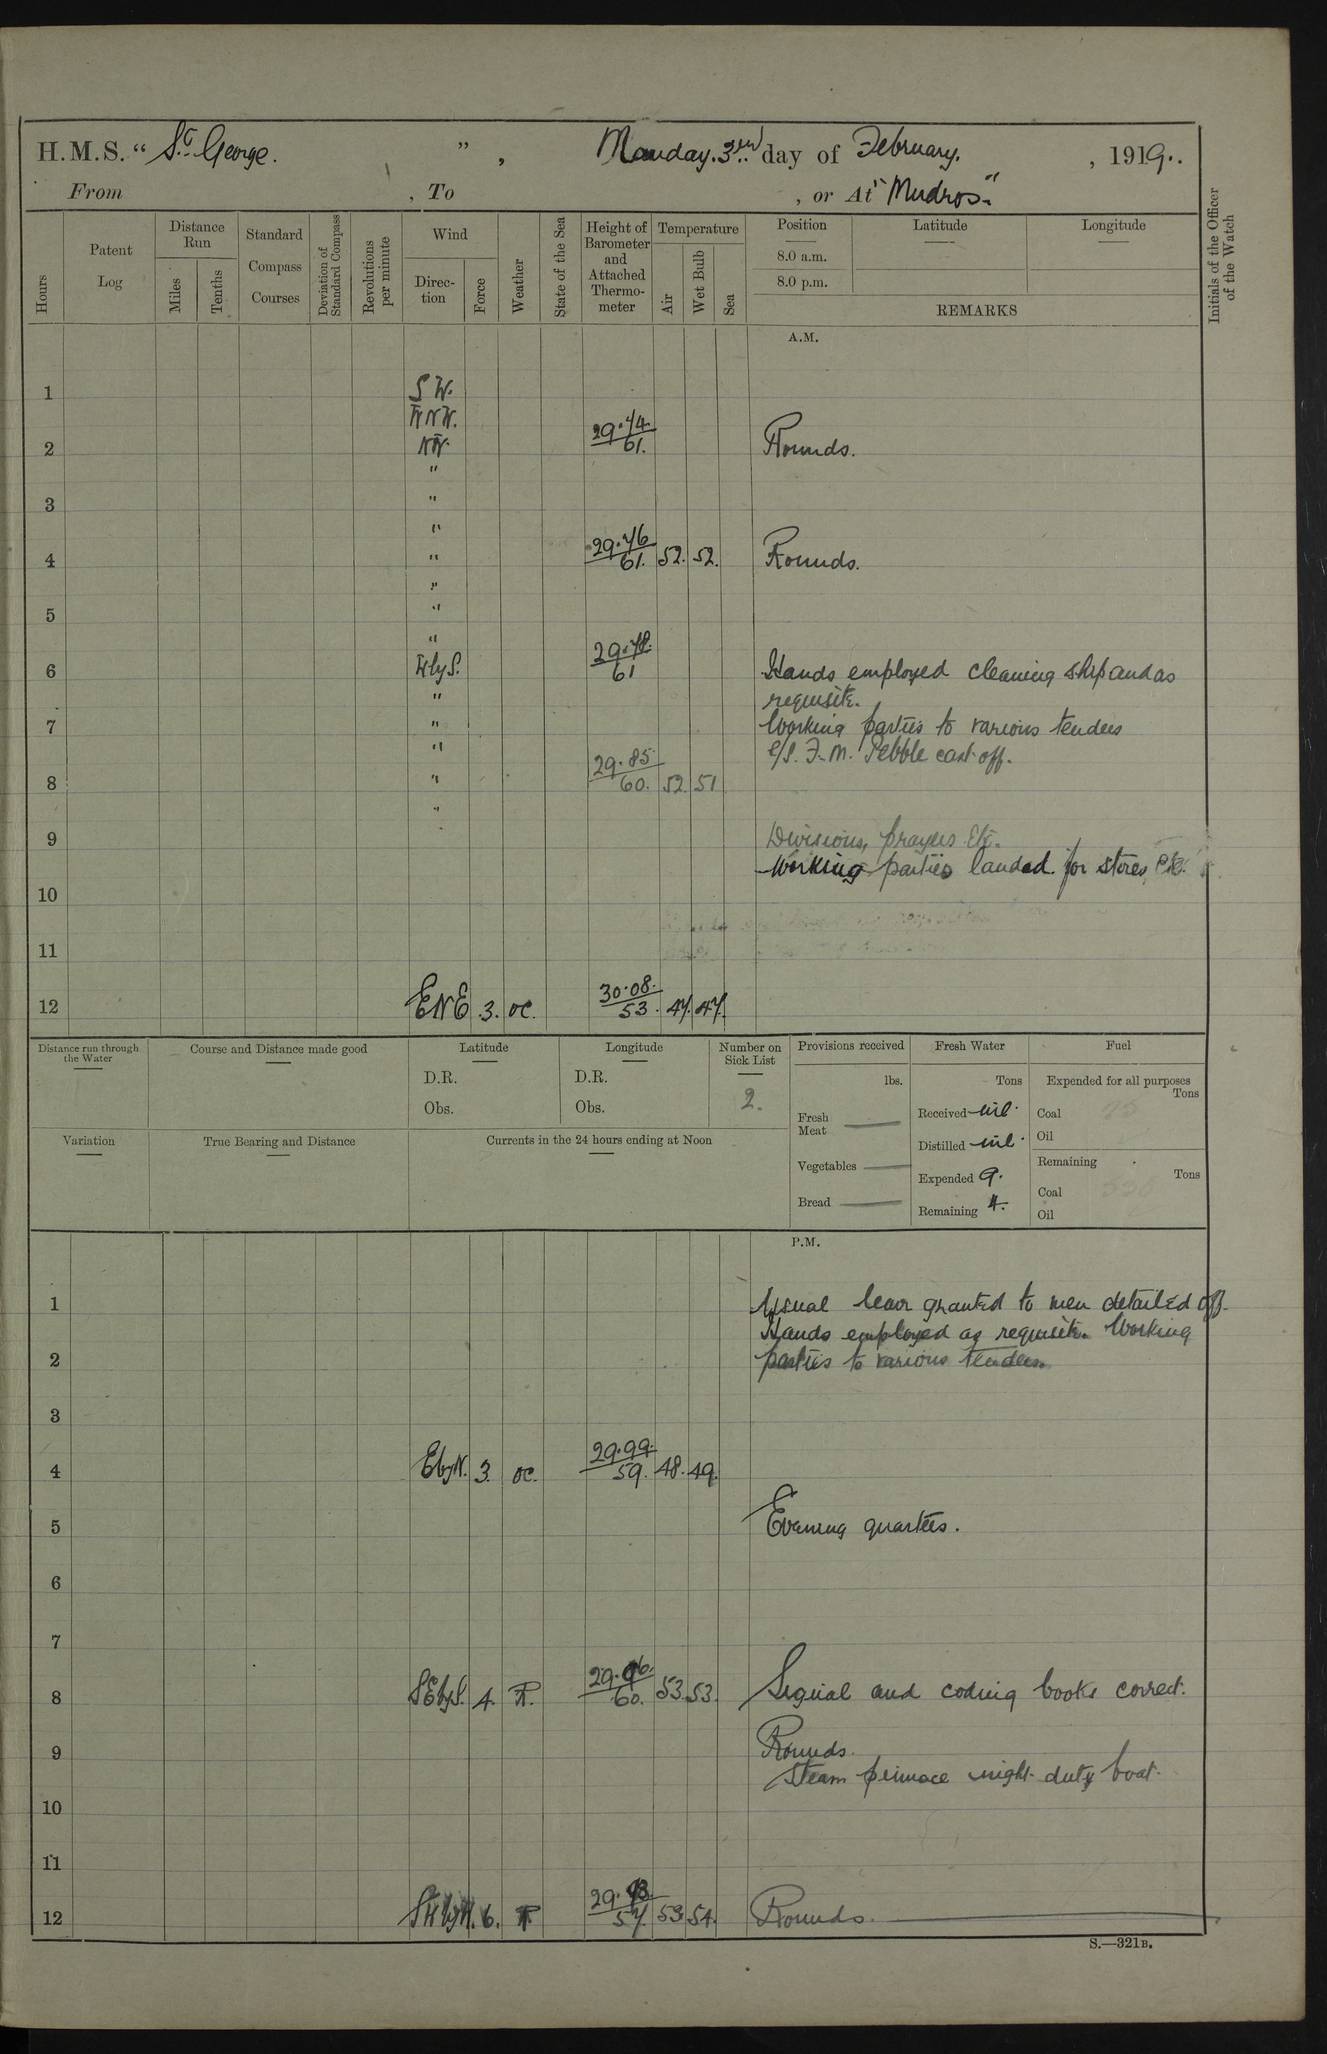 H.M.S. “ St. George. ” , Monday. 3rd day of February. , 1919..
From , To , or At “Mudros.”
Hours
Patent Log
Distance Run
Miles
Tenths
Standard Compass Courses
Deviation of Standard Compass
Revolutions per minute
Wind
Direc-tion
Force
Weather
State of the Sea
Height of Barometer and Attached Thermo-meter
Temperature
Air
Wet Bulb
Sea
Position
8.0 a.m.
8.0 p.m.
Latitude
Longitude
REMARKS
Initials of the Officer of the Watch
A.M.
1 SW.
WNW.
2 NW. 29.74. 61. Rounds.
"
3 "
"
4 " 29.76 61. 52. 52. Rounds.
"
5 "
"
6 WbyS. 29.78. 61 Hands employed cleaning ship and as
" requisite.
7 " Working parties to various tenders
" F.M. Pebble cast off.
8 " 29.85 60. 52. 51
"
9 Divisions, prayers Etc.
Working parties landed for stores, etc.
10
11
12 ENE 3. oc. 30.08. 53. 47. 47.
Distance run through the Water
Course and Distance made good
Latitude
D.R.
Obs.
Longitude
D.R.
Obs.
Number on Sick List
2.
Provisions received
lbs.
Fresh Meat
Vegetables
Bread
Fresh Water
Tons
Received nil.
Distilled nil.
Expended 9.
Remaining
Fuel
Expended for all purposes
Tons
Coal
Oil
Remaining
Tons
Coal
Oil
Variation
True Bearing and Distance
Currents in the 24 hours ending at Noon
P.M.
1 Usual leave granted to men detailed off.
Hands employed as requisite. Working
2 parties to various tenders.
3
4 EbyN. 3. oc. 29.99. 59. 48. 49.
5 Evening quarters.
6
7
8 SEbyS. 4. R. 29.96. 60. 53. 53. Signal and coding books correct.
9 Rounds.
Steam pinnace night duty boat.
10
11
12 6. R. 57. 53. 54. Rounds.
S.—321B.